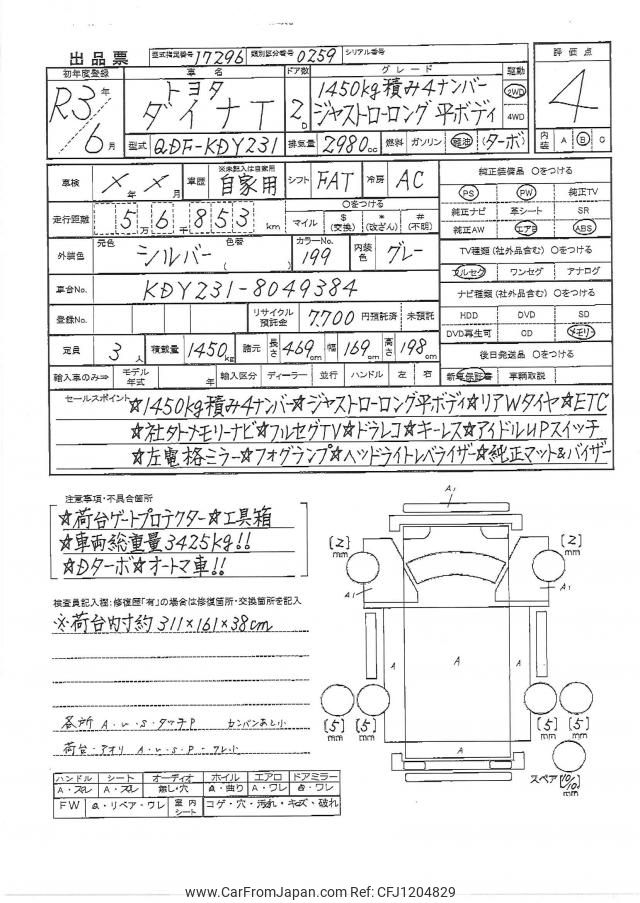 出品票 型式指定番号 17296 類別区分番号 0259 シリアル番号
評価点 4
内装 A B C
初年度登録 R3年 6月
車名 トヨタ ダイナT
ドア数 2D
グレード 1450kg積み4ナンバー
ジャストローロング平ボディ
駆動 2WD 4WD
型式 QDF-KDY231 排気量 2980cc 燃料 ガソリン 軽油 (ターボ)
車検 ×年×月 車歴 ※未記入は自家用 自家用 シフト FAT 冷房 AC
走行距離 5万6千853km
○をつける
マイル $(交換) *(改ざん) #(不明)
外装色 元色 シルバー 色替 ( ) カラーNo. 199 内装色 グレー
車台No. KDY231-8049384
登録No. リサイクル預託金 7,700 円預託済 未預託
定員 3人 積載量 1450kg 諸元 長さ 469cm 幅 169cm 高さ 198cm
輸入車のみ⇒ モデル年式 年 輸入区分 ディーラー 並行 ハンドル 左 右
純正装備品 ○をつける
PS PW 純正TV
純正ナビ 革シート SR
純正AW エアB ABS
TV種類(社外品含む) ○をつける
フルセグ ワンセグ アナログ
ナビ種類(社外品含む) ○をつける
HDD DVD SD
DVD再生可 CD メモリー
後日発送品 ○をつける
新車保証書 車輌取説
セールスポイント ☆1450kg積み4ナンバー☆ジャストローロング平ボディ☆リアWタイヤ☆ETC
☆社外メモリーナビ☆フルセグTV☆ドラレコ☆キーレス☆アイドルUPスイッチ
☆左電格ミラー☆フォグランプ☆ヘッドライトレベライザー☆純正マット&バイザー
注意事項・不具合箇所
☆荷台ゲートプロテクター☆工具箱
☆車両総重量3425kg!!
☆Dターボ☆オートマ車!!
検査員記入欄:修復歴「有」の場合は修復箇所・交換箇所を記入
※荷台内寸約311×161×38cm
各所 A・U・S・タッチP カンバンあと小
荷台・アオリ A・U・S・P・ワレ小
ハンドル シート オーディオ ホイル エアロ ドアミラー
A・スレ A・スレ 無し・穴 a・曲り A・ワレ a・ワレ
FW a・リペア・ワレ 室内シート コゲ・穴・汚れ・キズ・破れ
A1
[2]mm [2]mm
A1 A1
A A A
A
[5]mm [5]mm [5]mm [5]mm
スペア (10/10)mm
www.CarFromJapan.com Ref: CFJ1204829